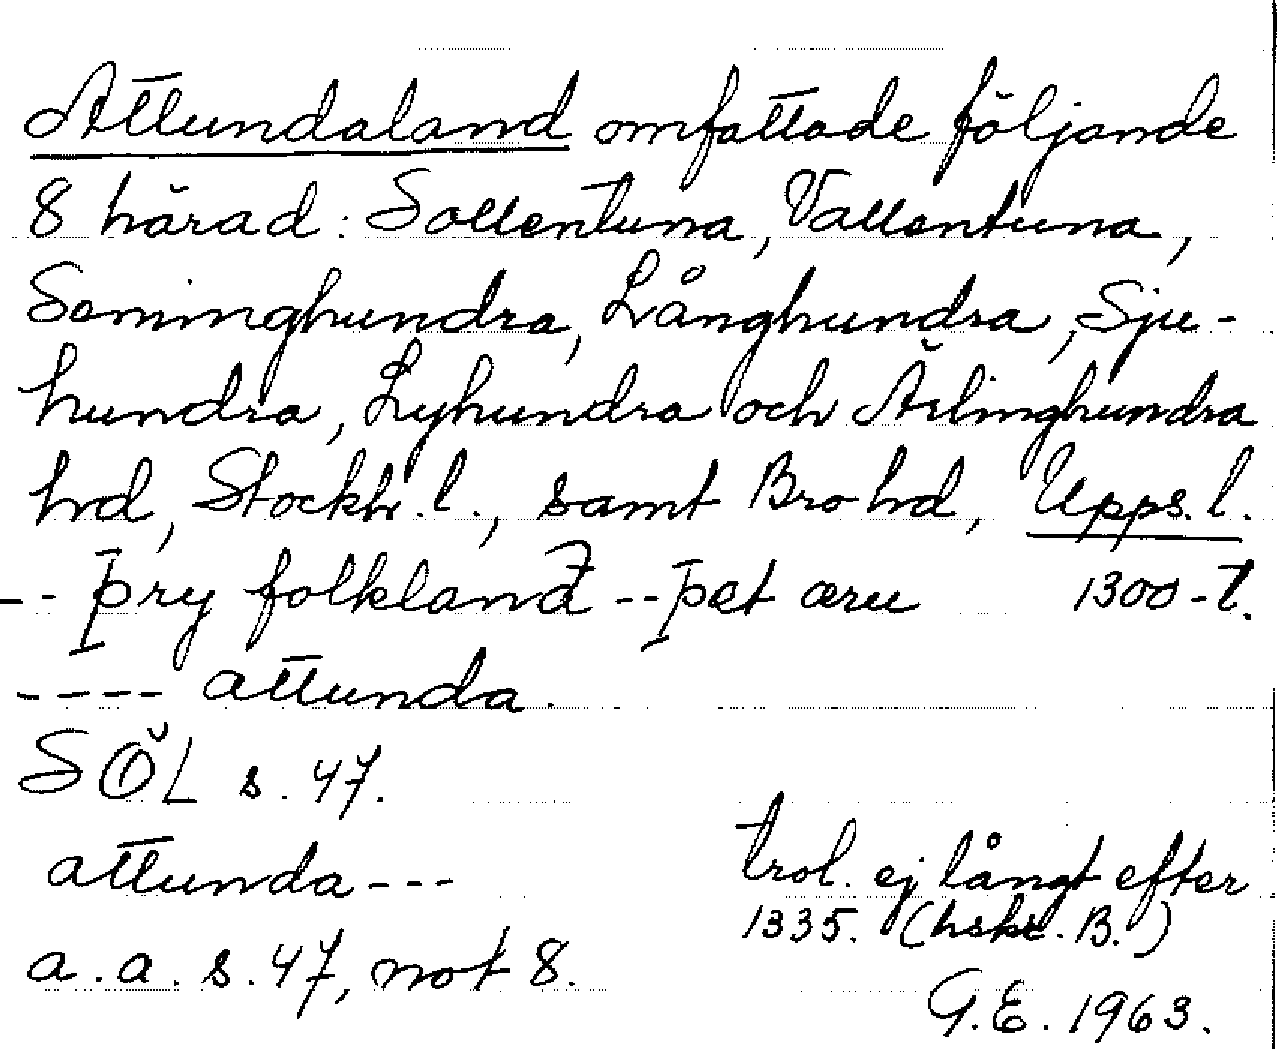 Attundaland omfattade följande
8 härad: Sollentuna, Vallentuna,
Seminghundra, Långhundra, Sju-
hundra, Lyhundra och Ärlinghundra
hrd, Stockh. l., samt Bro hrd, Upps. l.
-- þry folkland -- þet æru 1300-t.
---- attunda.
SÖL s. 47.
attunda --- trol. ej långt efter
1335. (hskr. B.)
a. a. s. 47, not 8.
G.E. 1963.